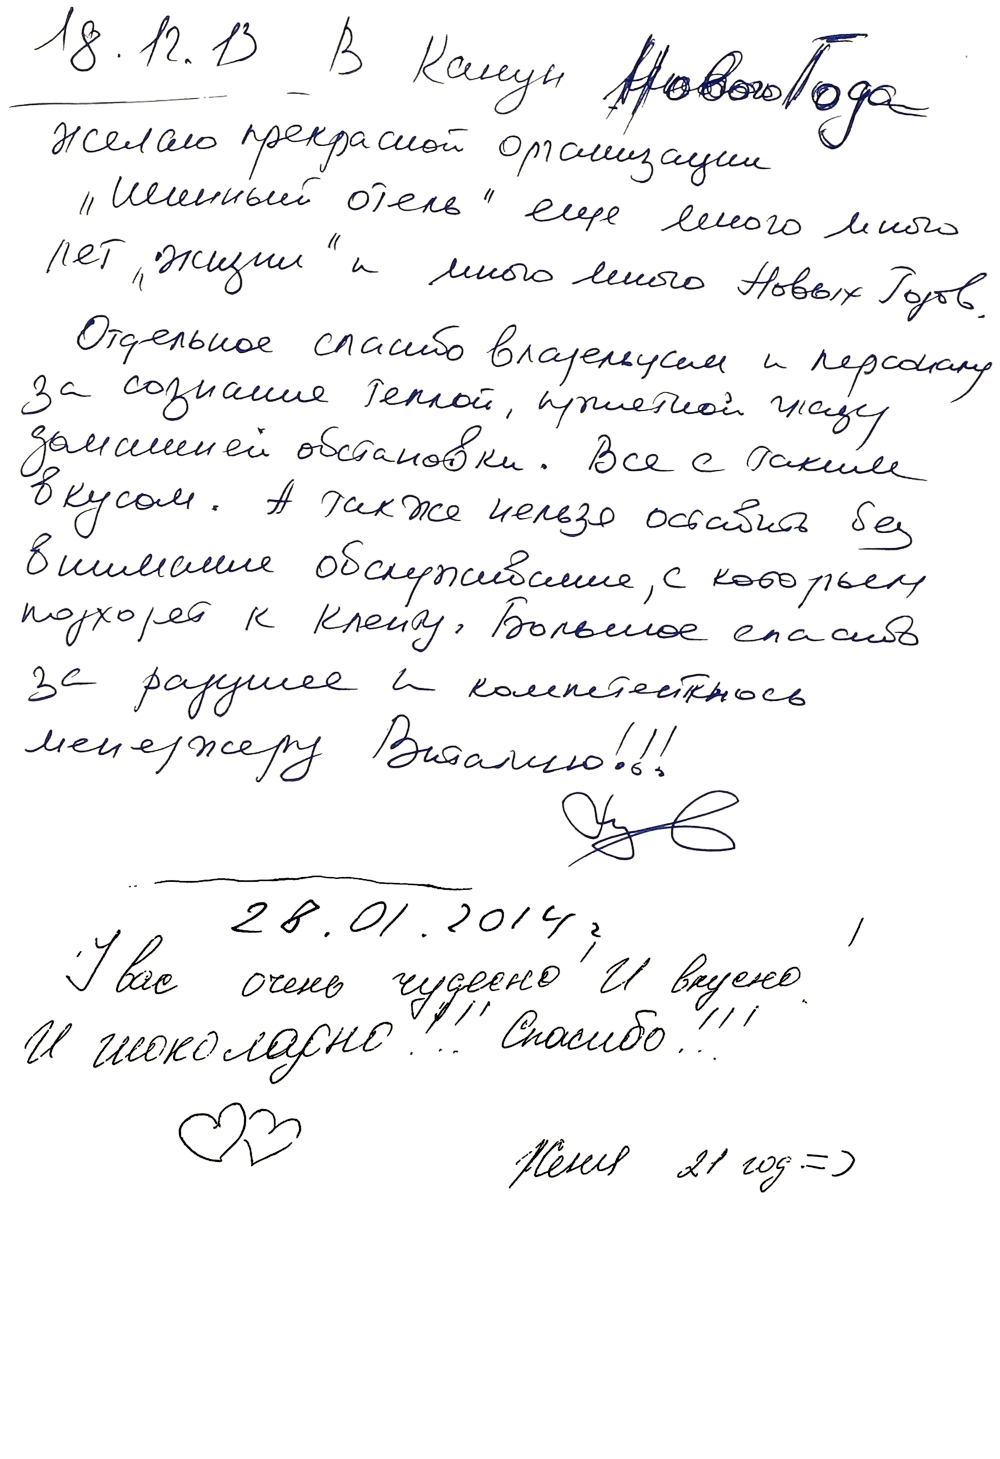 18.12.13 В Канун Нового Года
желаю прекрасной организации
„Шинный отель" еще много много
лет „жизни" и много много Новых Годов.
Отдельное спасибо владельцам и персоналу
за создание теплой, приятной
домашней обстановки. Все с таким
вкусом. А также нельзя оставить без
внимание обслуживание, с которым
подходят к клеинту. Большое спасибо
за радушее и
менеджеру Виталию!!!
28.01.2014 г
У вас очень чудесно! И вкусно!
И шоколадно!!! Спасибо!!!
Женя 21 год =)